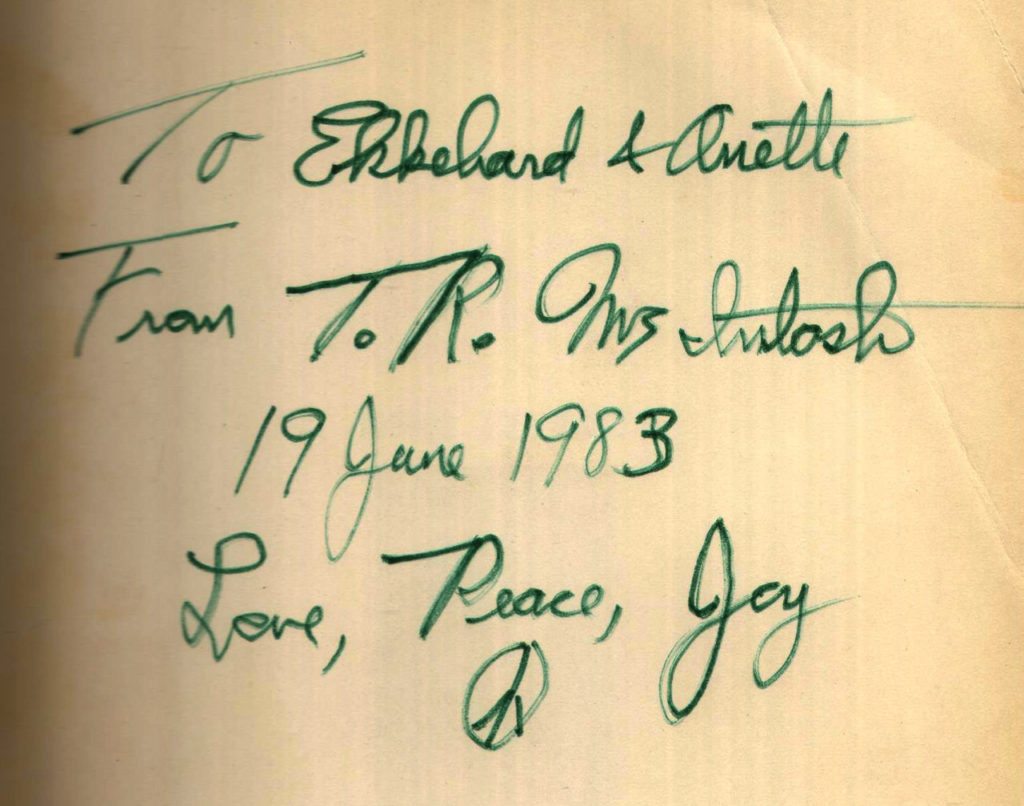 To Ekkehard & Anette
From T. R. McIntosh
19 June 1983
Love, Peace, Joy